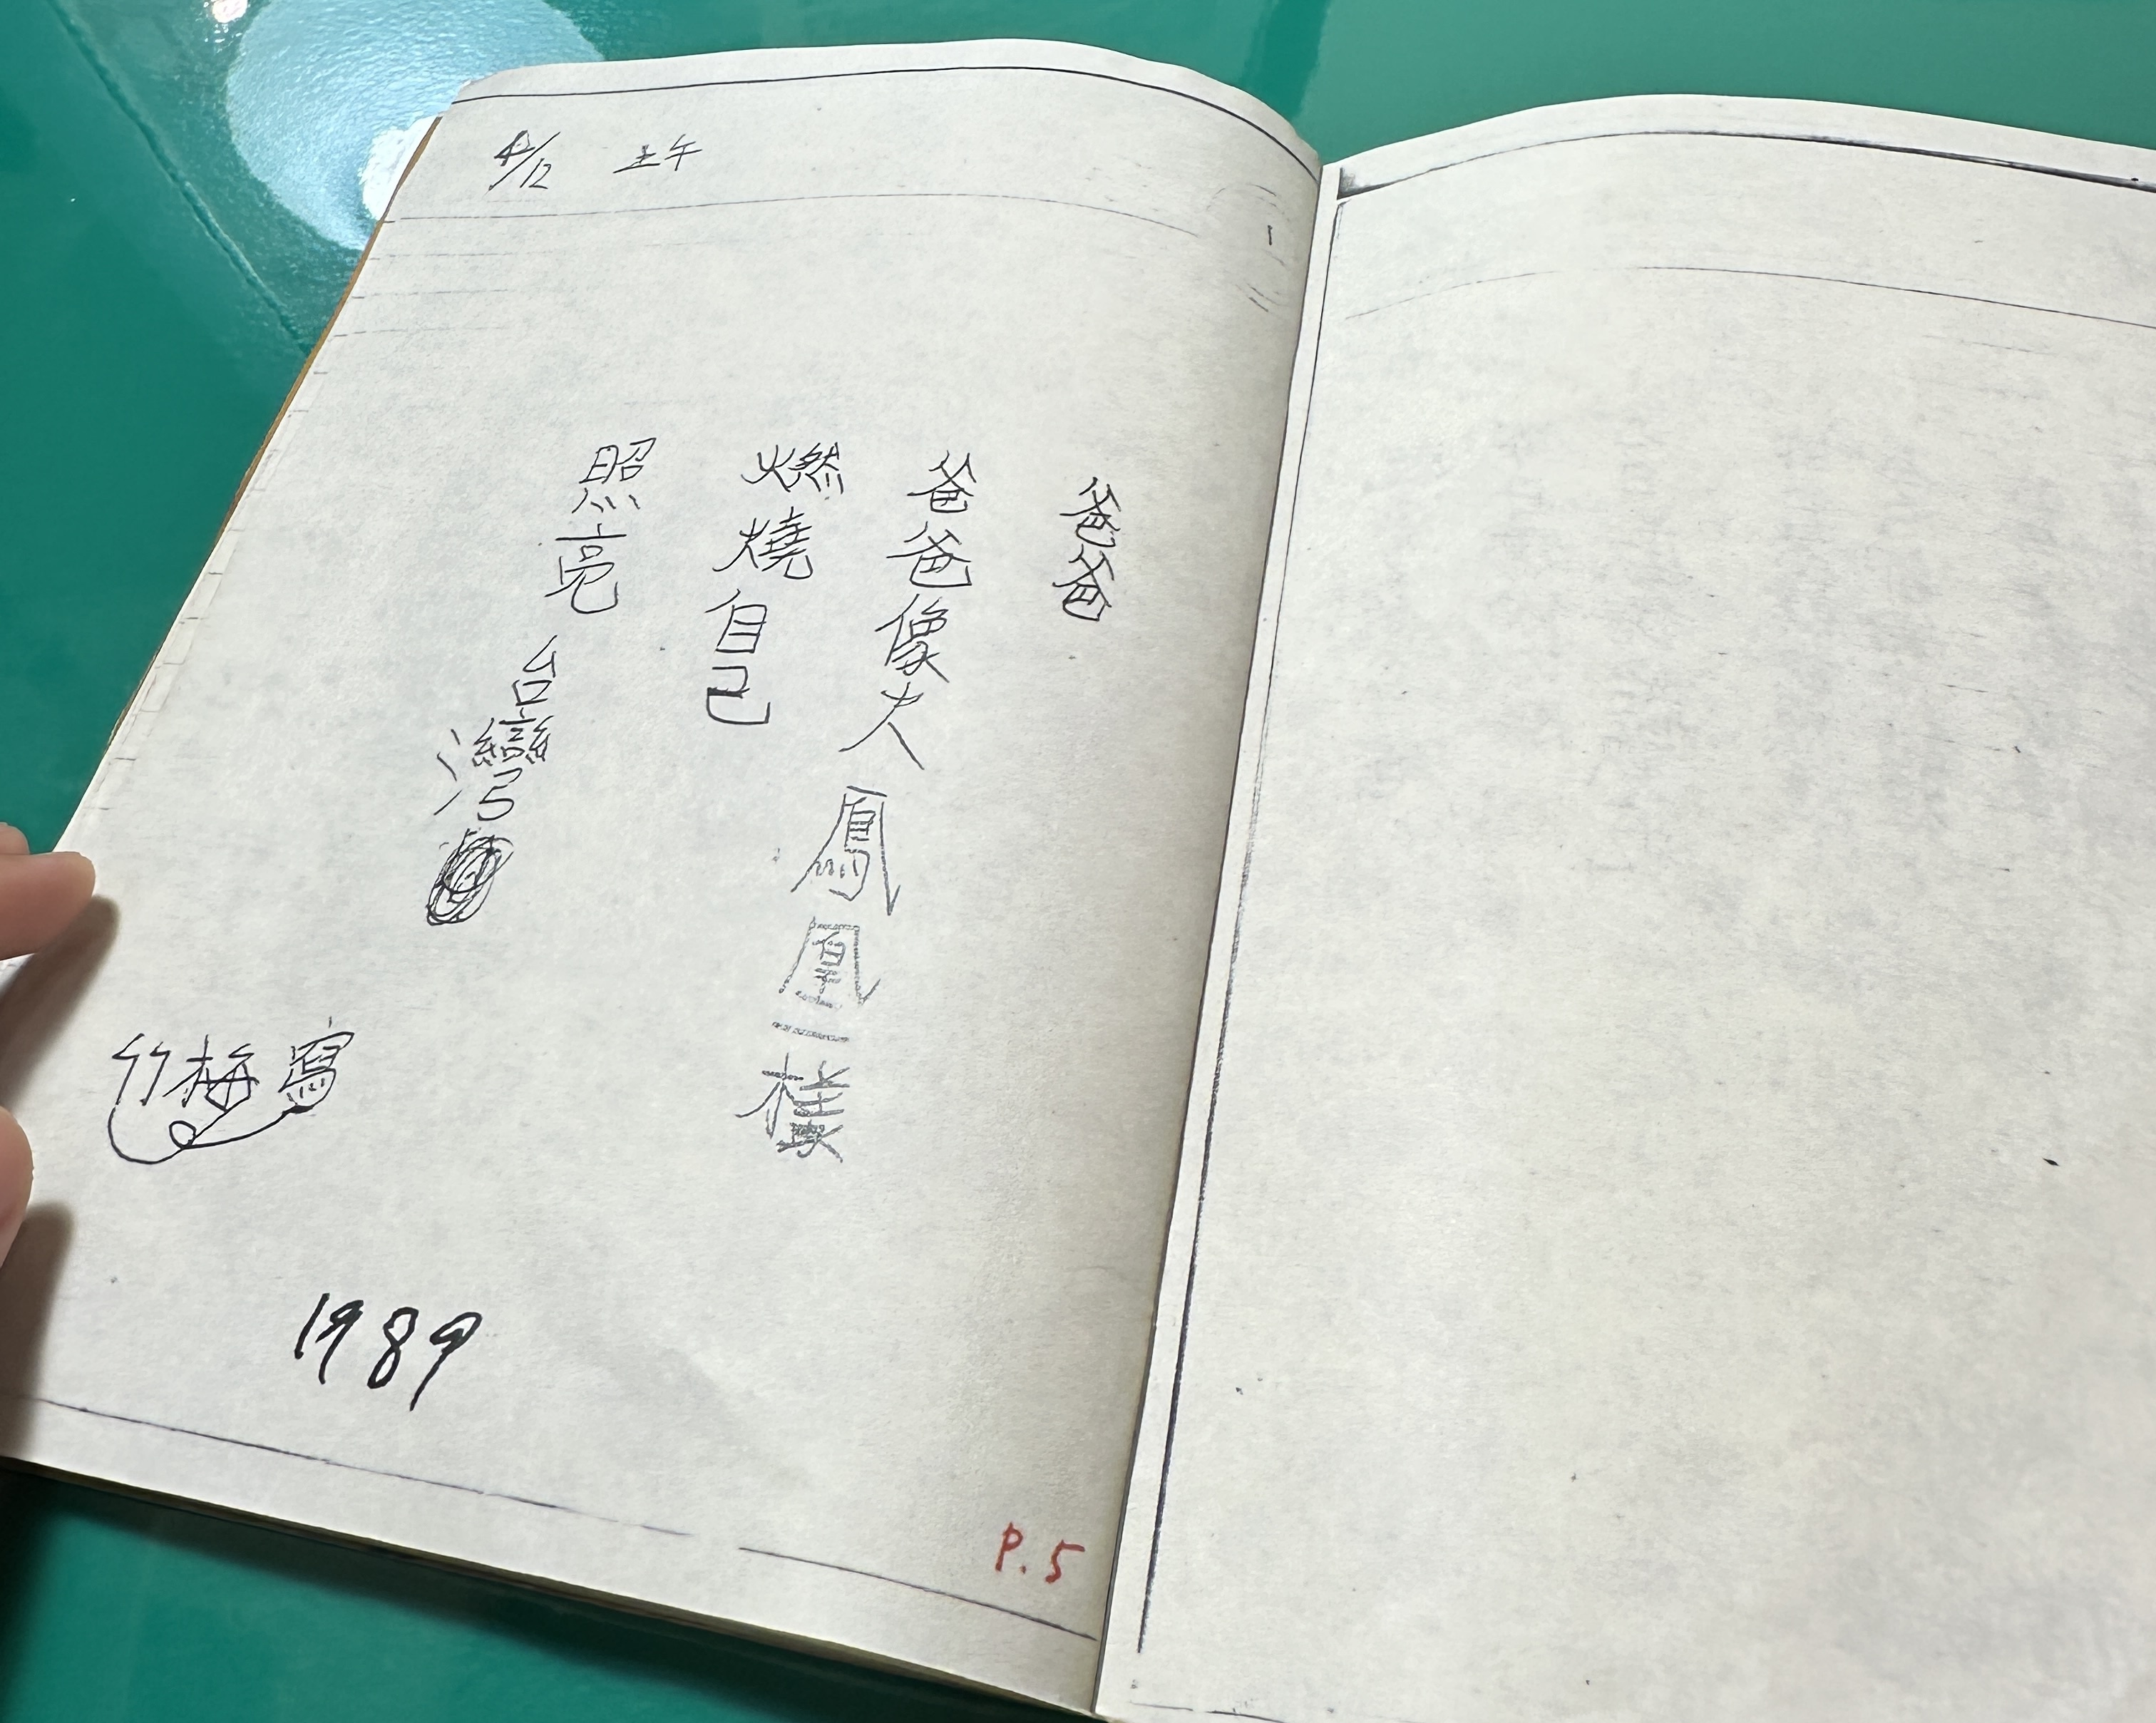 4/12 上午
爸爸
爸爸像火鳳凰一樣
燃燒自己
照亮台灣
竹梅寫
1989
P.5